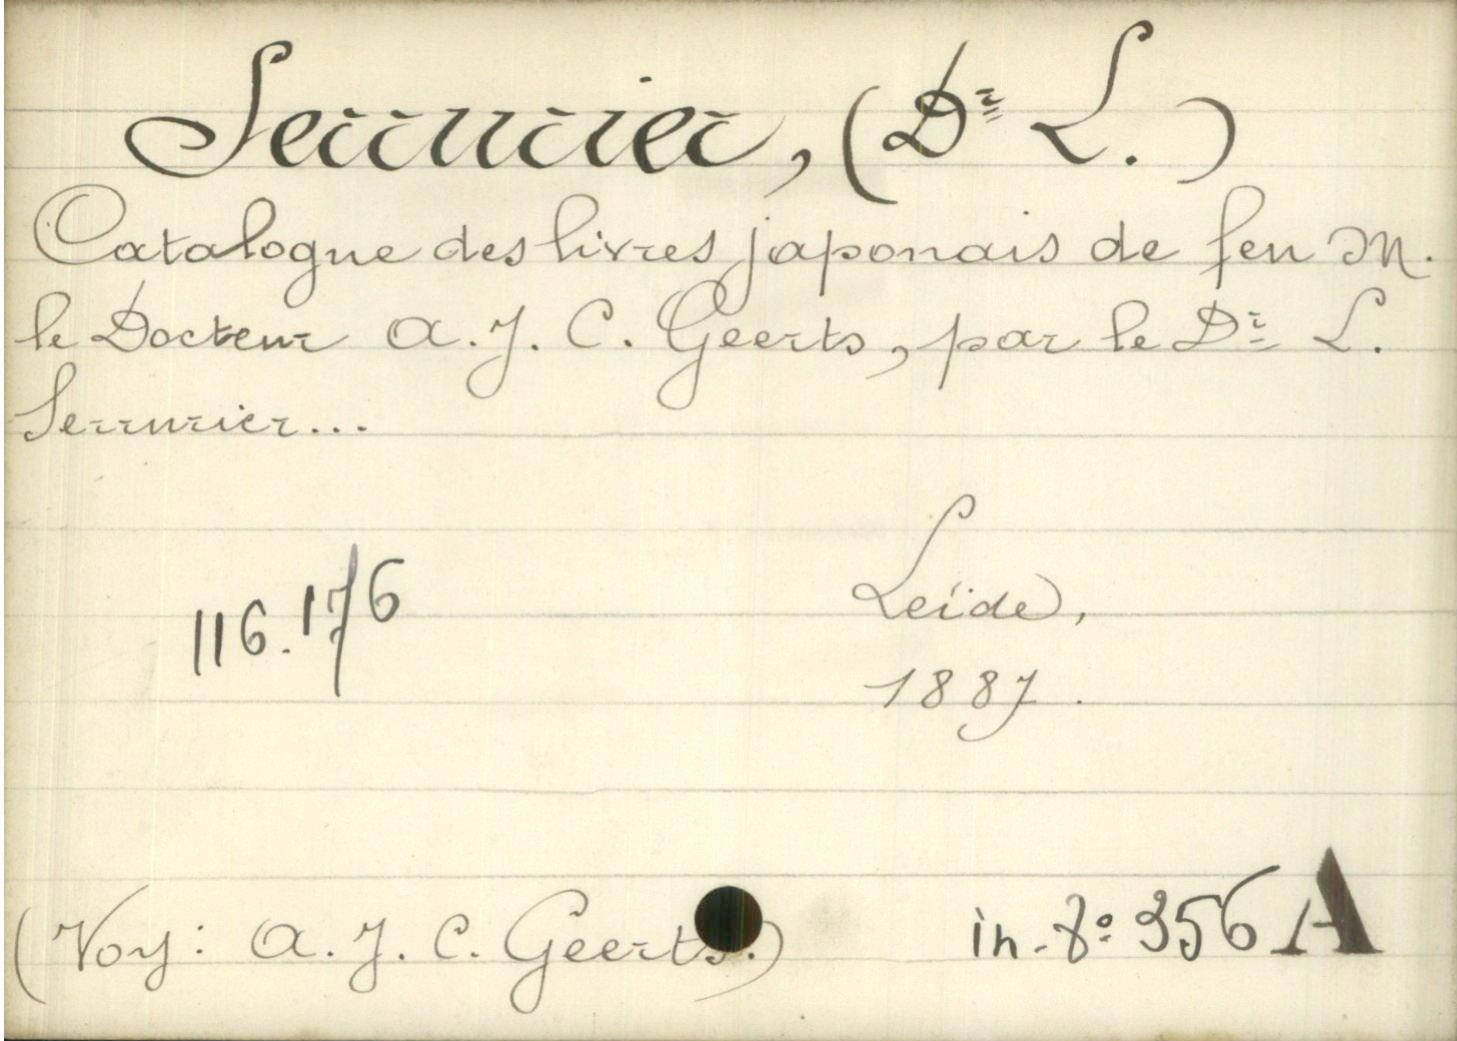 Serrurier, (Dr L.)
Catalogue des livres japonais de feu M.
le Docteur A. J. C. Geerts, par le Dr L.
Serrurier...
116.176
Leïde,
1887.
(Voy: A. J. C. Geerts.)
in-8º 356 A